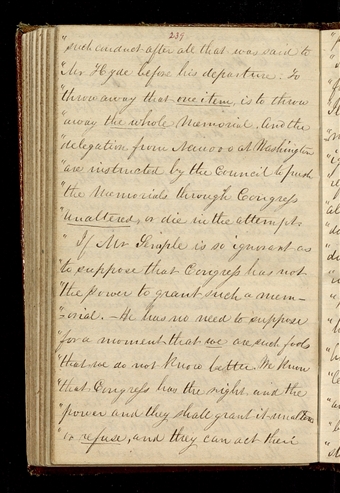 239
"such conduct after all that was said to
"Mr Hyde before his departure. To
"throw away that one item, is to throw
"away the whole Memorial, And the
"delegation from Nauvoo at Washington
"are instructed by the Council to push
"the Memorials through Congress
"unaltered, or die in the attempt.
"If Mr Semple is so ignorant as
"to suppose that Congress has not
"the power to grant such a mem-
"-orial. – He has no need to suppose
"for a moment that we are such fools
"that we do not know better. We know
"that Congress has the right and the
"power and they shall grant it unaltered
"or refuse, and they can act their